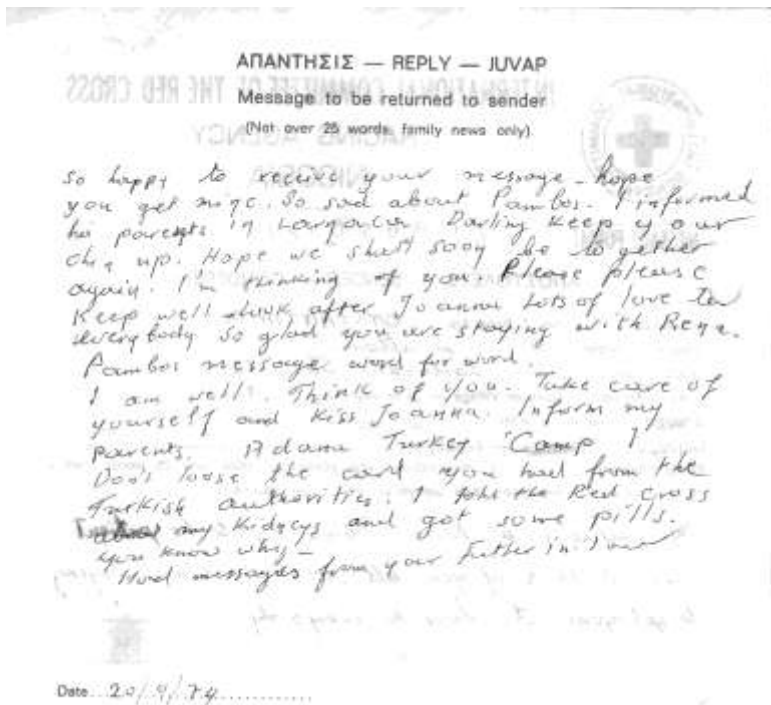 ΑΠΑΝΤΗΣΙΣ — REPLY — JUVAP
INTERNATIONAL COMMITTEE OF THE RED CROSS
Message to be returned to sender
(Not over 25 words, family news only)
TRACING AGENCY
NICOSIA
So happy to receive your message - hope
you get mine. So sad about Pambos. I informed
his parents in Larnaca. Darling keep your
chin up. Hope we shall soon be together
again. I'm thinking of you Please please
Keep well look after Joanna Lots of love to
everybody so glad you are staying with Rena.
Pambos message word for word.
I am well. Think of you. Take care of
yourself and kiss Joanna. Inform my
parents. Adana Turkey Camp 1
Don't loose the card you had from the
Turkish authorities. I told the Red Cross
about my Kidneys and got some pills.
You know why -
Had messages from your Father in law
Date 20/9/74